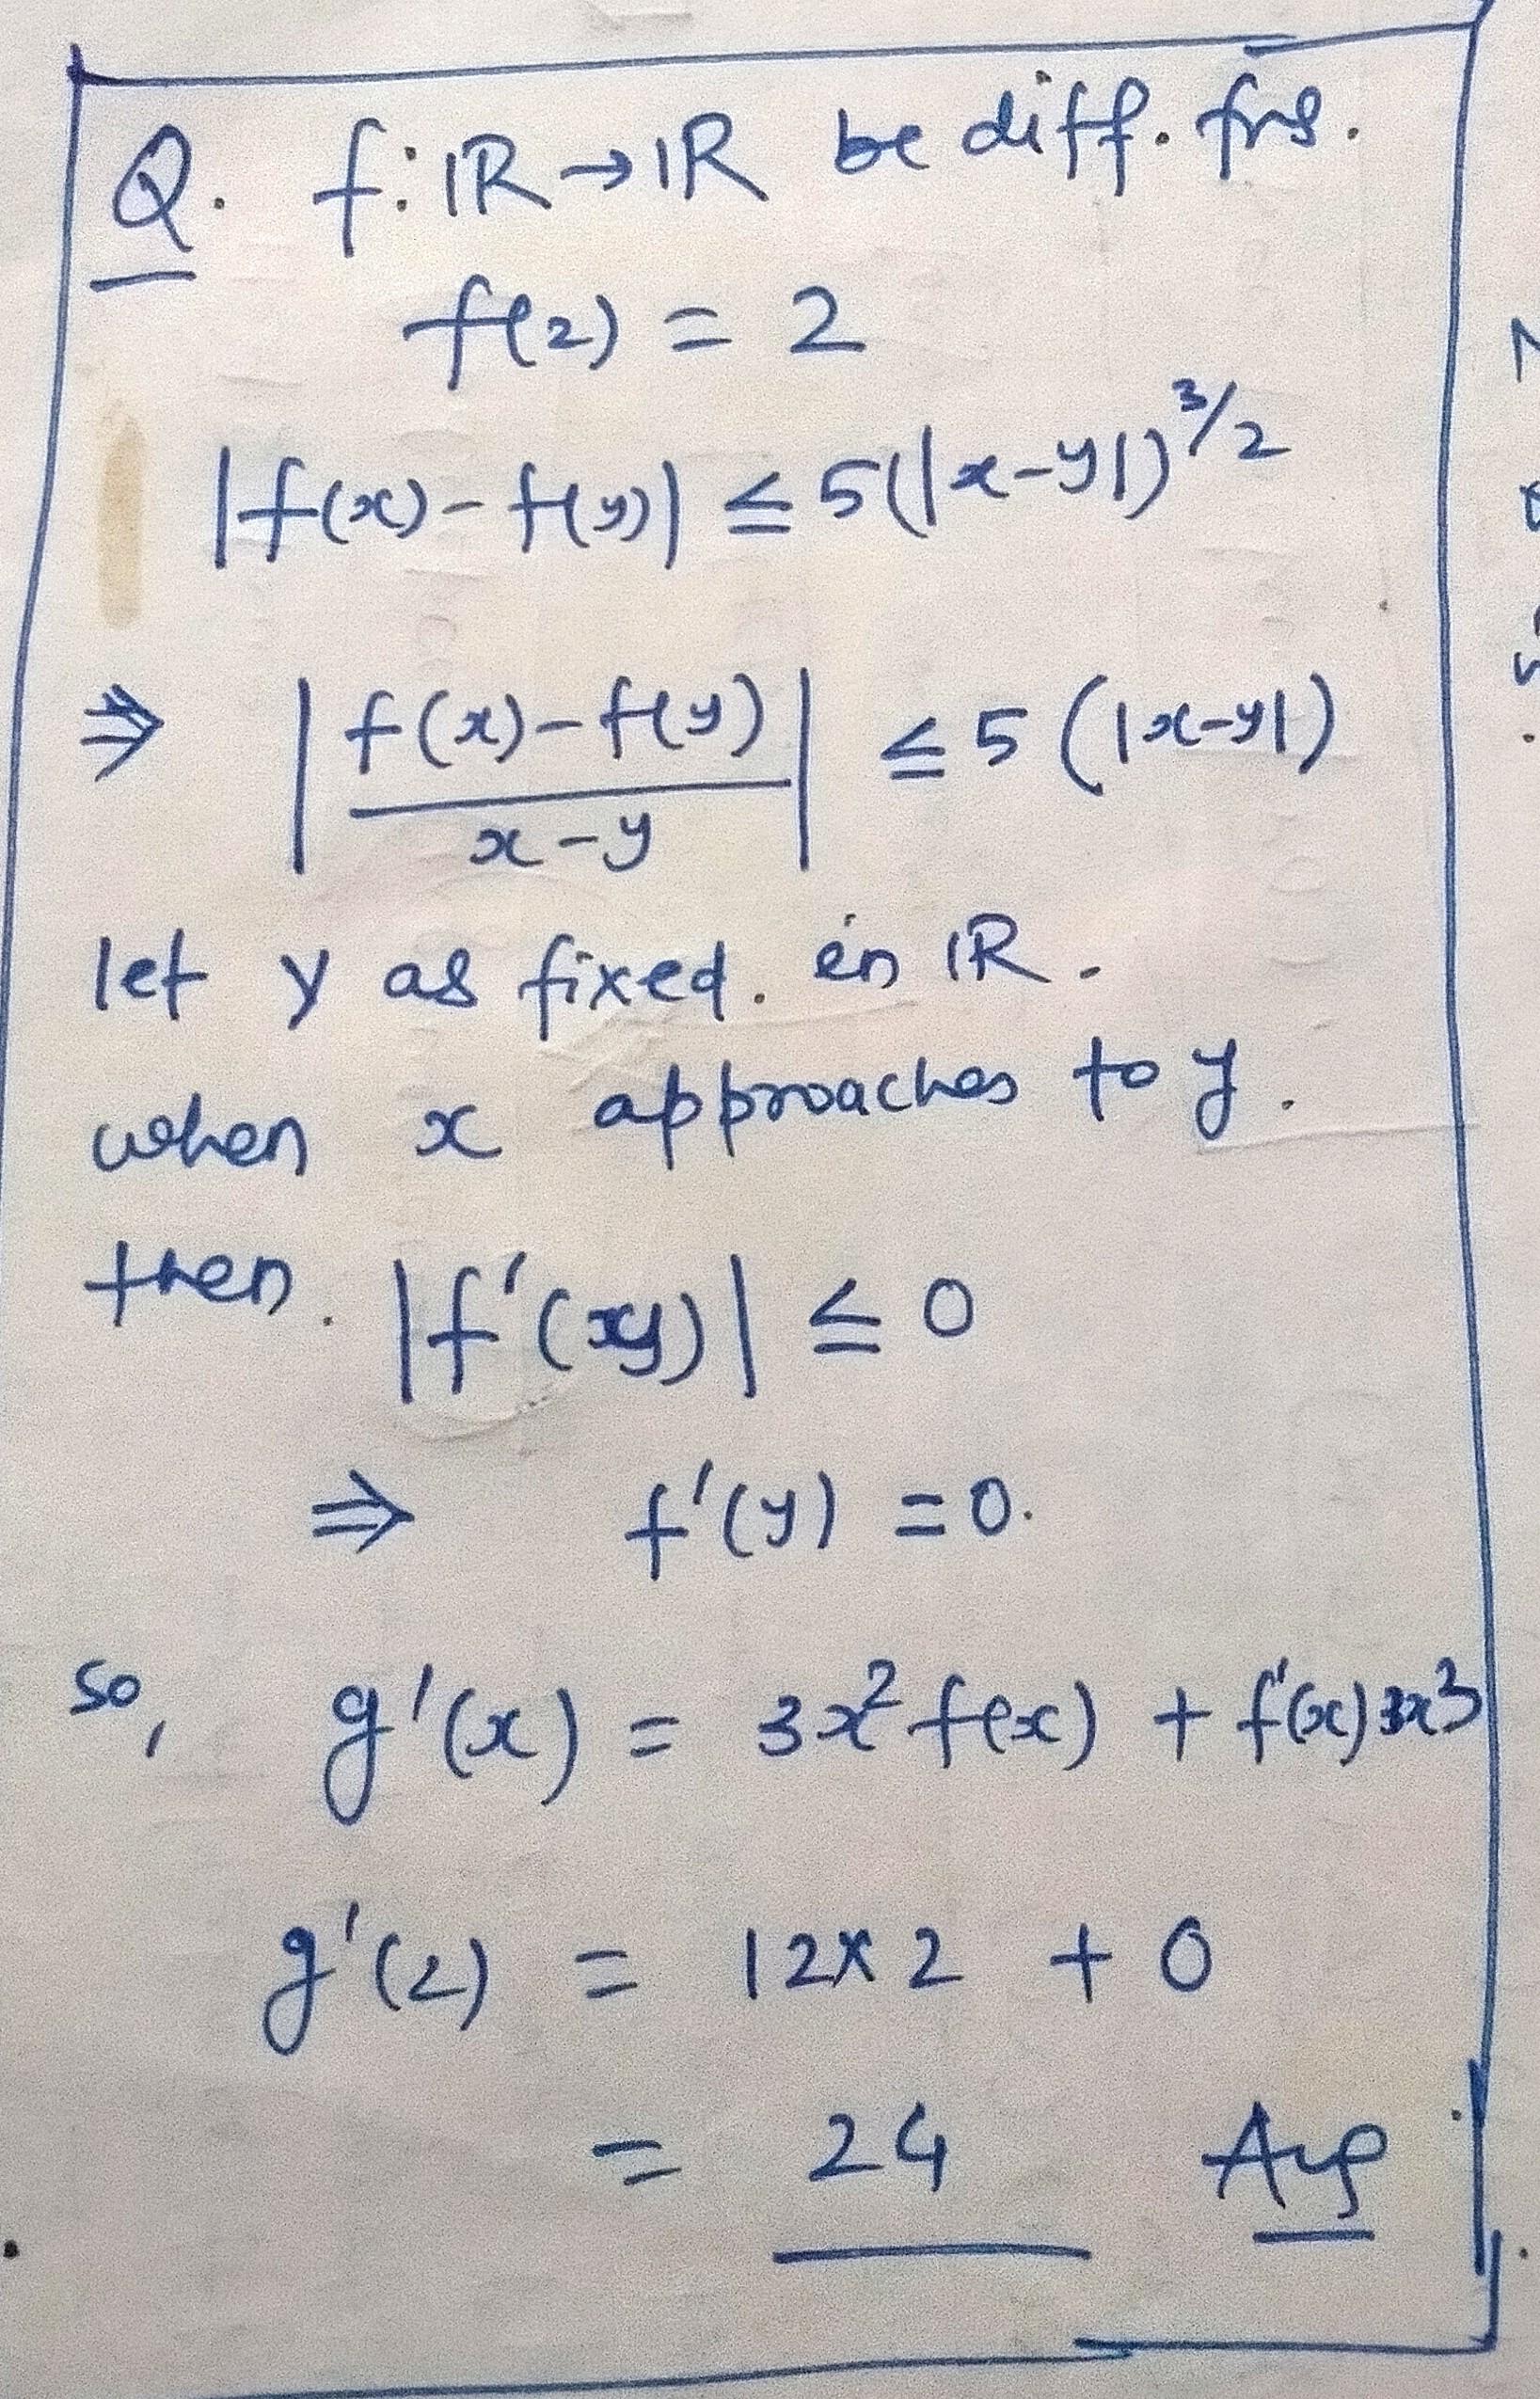 Q. f: ℝ → ℝ be diff. fns.
f(2) = 2
|f(x) - f(y)| ≤ 5(|x-y|)^3/2
⇒ |f(x) - f(y) / x - y| ≤ 5 (|x-y|)
let y as fixed. in ℝ.
when x approaches to y.
then. |f'(y)| ≤ 0
⇒ f'(y) = 0.
so, g'(x) = 3x² f(x) + f'(x) x³
g'(2) = 12 × 2 + 0
= 24 Ans